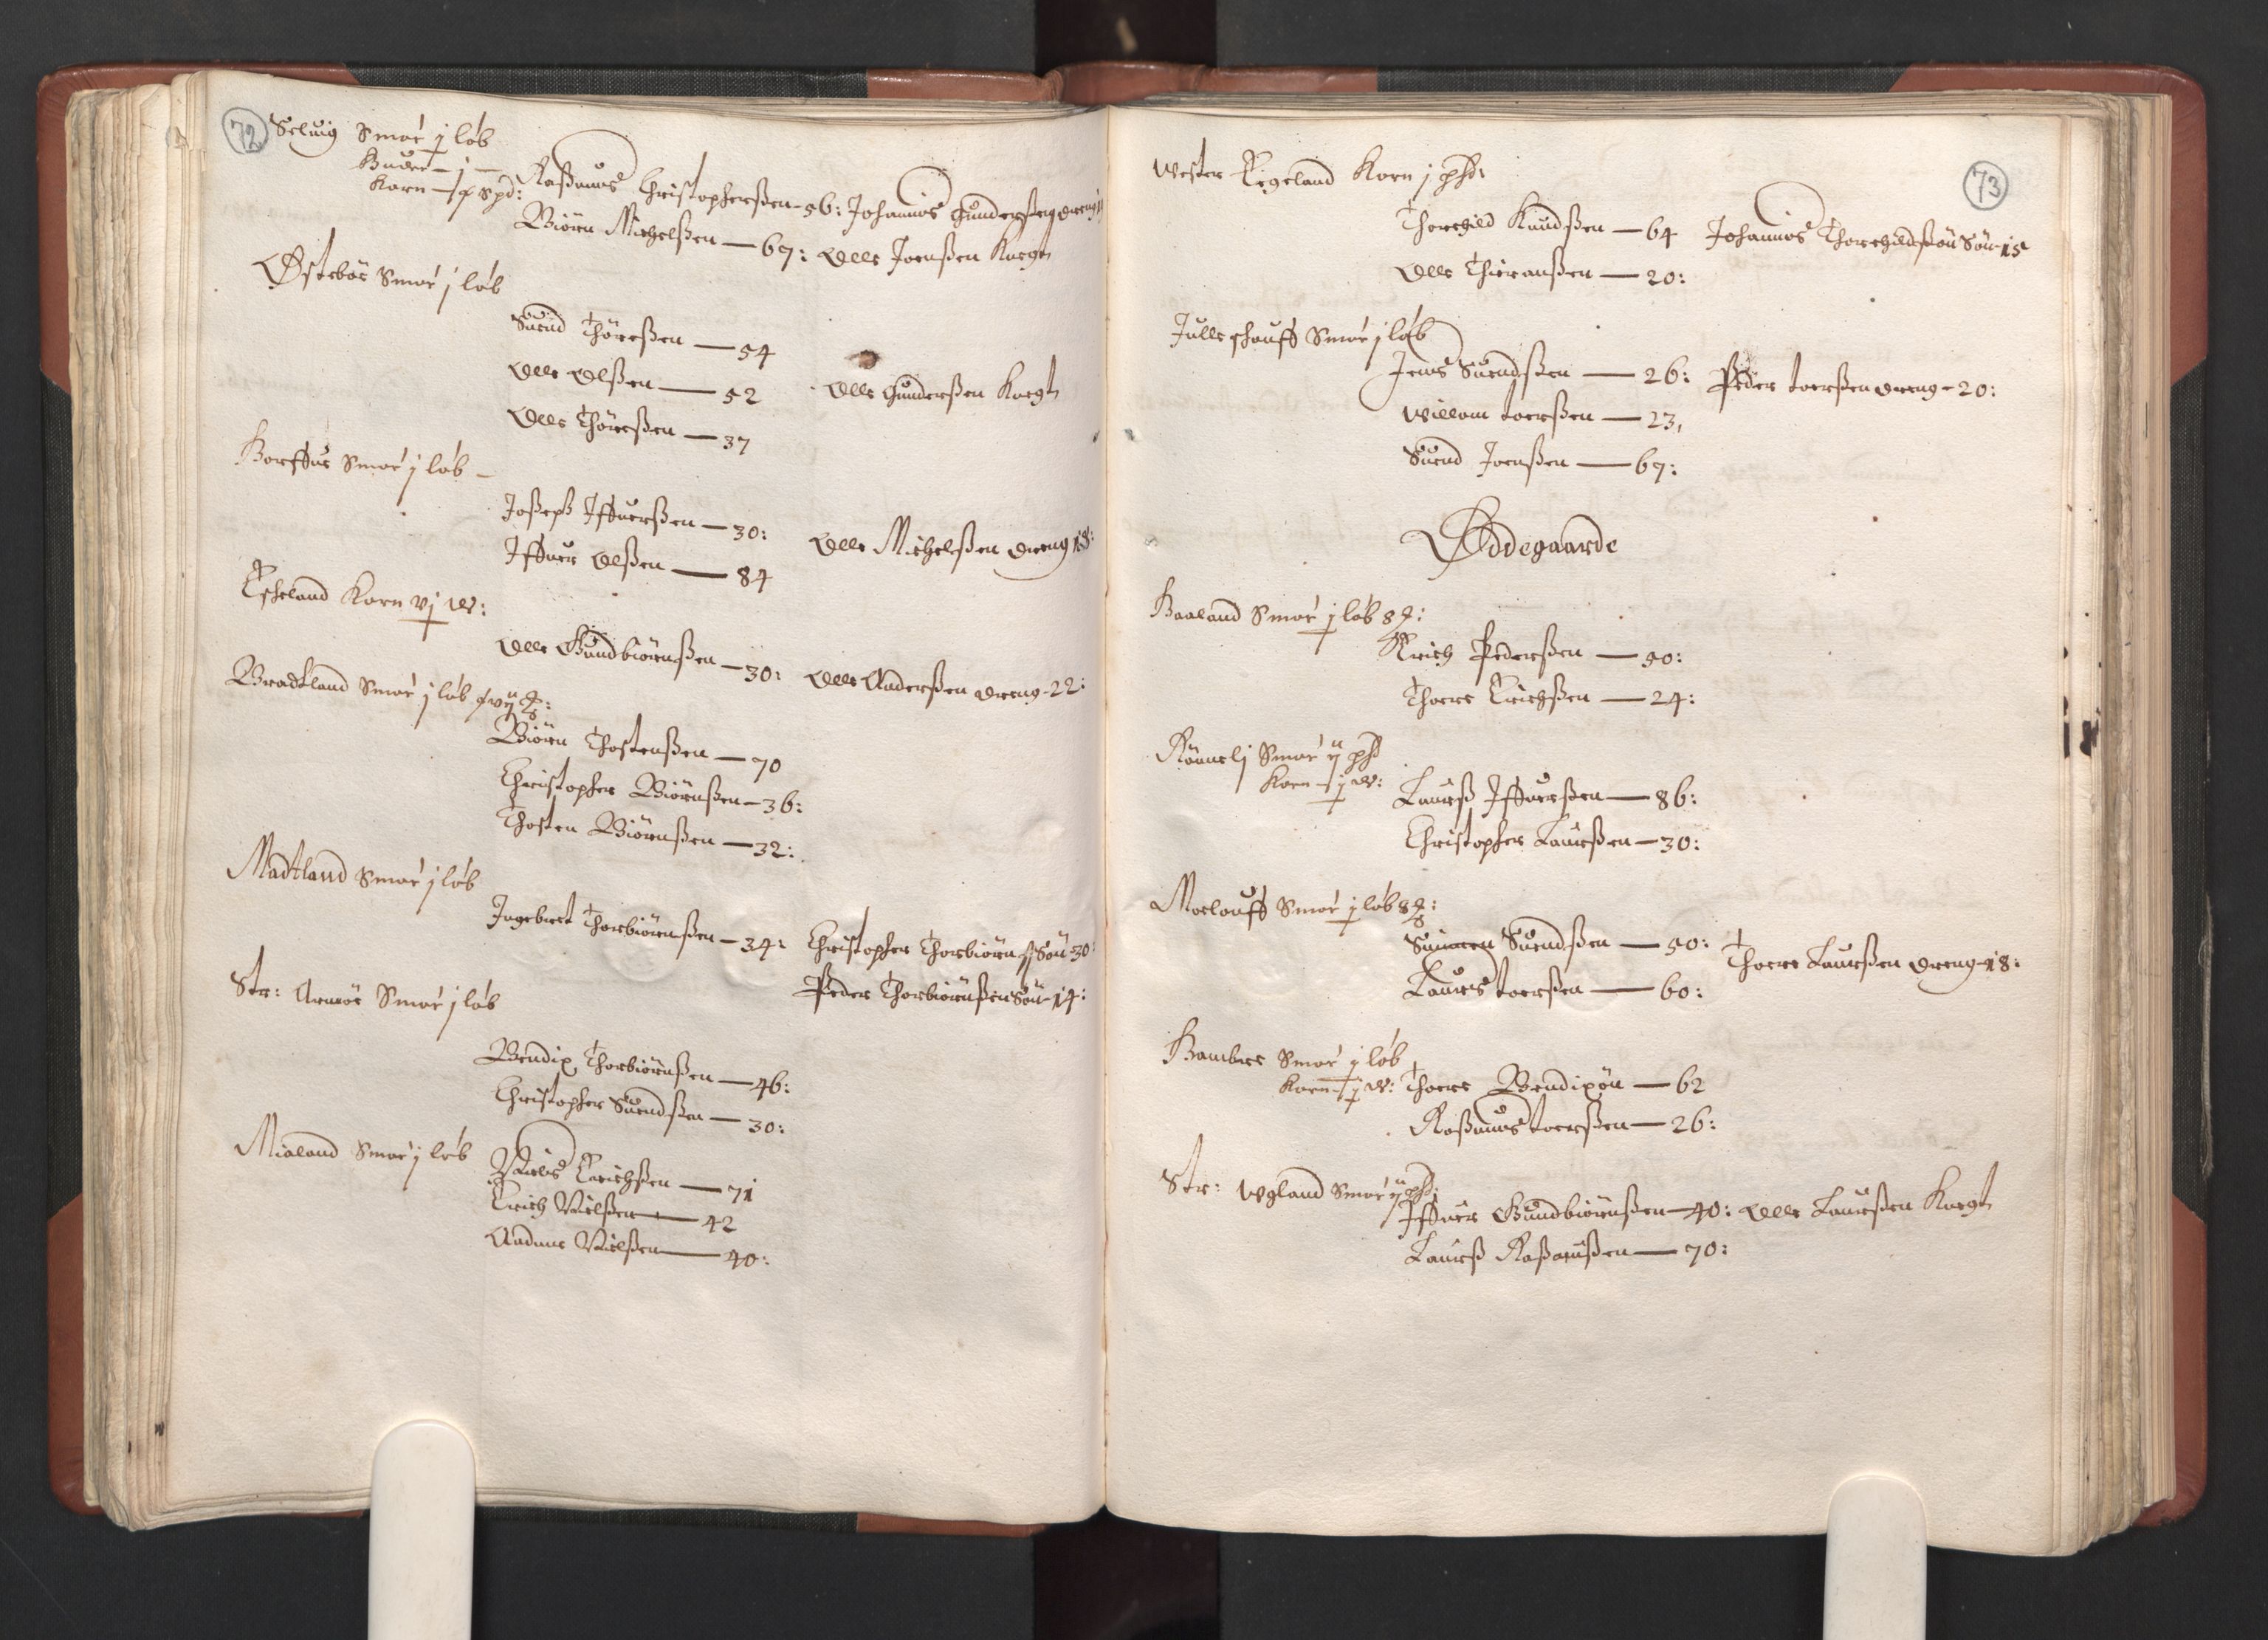 72
Seluig Smør j løb
Huder - j -
Korn - ƒ spd:
Raßmus Christopherßen - 56: Johannis Gunderßen dreng
Biørn Michelßen - 67: Olle Joenßen Knegt
Østebøe Smør j løb
Suend Thørßen - 54
Olle Olßen - 52 Olle Gunderßen Knegt
Olle Thørßen - 37
Horffue Smør j løb -
Joßeph Iffuerßen - 30: Olle Michelßen dreng 18:
Iffuer Olßen - 84
Escheland Korn vj w:
Olle Gundbiørnßen - 30: Olle Anderßen dreng - 22:
Bradtland Smør j løb
Biørn Thostenßen - 70
Christopher Biørnßen - 36:
Thosten Biørnßen - 32:
Madtland Smør j løb
Ingebret Thorbiørnßen - 34: Christopher Thorbiørnß Søn - 30:
Peder Thorbiørnßen Søn - 14:
Str: Armøe Smør j løb
Bendix Thorbiørnßen - 46:
Christopher Suendßen - 30:
Mialand Smør j løb
Niels Erichßen - 71
Erich Nielßen - 42
Aadne Nielßen - 40:
73
Wester Rigeland Korn j phd:
Thorchild Knudßen - 64 Johannis Thorchildßøn Søn - 15
Olle Thieranßen - 20:
Julleshauff Smør j løb
Jens Suendßen - 26: Peder toerßen dreng - 20:
Willom toerßen - 23,
Suend Joenßen - 67:
Øddegaarde
Haaland Smør j løb 8
Erich Pederßen - 50:
Thoere Erichßen - 24:
Rønnelj Smør ij phd
Korn - j w:
Laurß Iffuerßen - 86:
Christopher Laurßen - 30:
Moelauff Smør j løb 8
Suendßen - 50: Thoere Laurßen dreng - 18:
Laurs toerßen - 60:
Hambre Smør j løb
Korn - j w: Thoere Bendixøn - 62
Raßmus toerßen - 26:
Str: Wgland Smør ij phd:
Iffuer Gundbiørnßen - 40: Olle Laurßen Knegt
Laurß Raßmußen - 70: